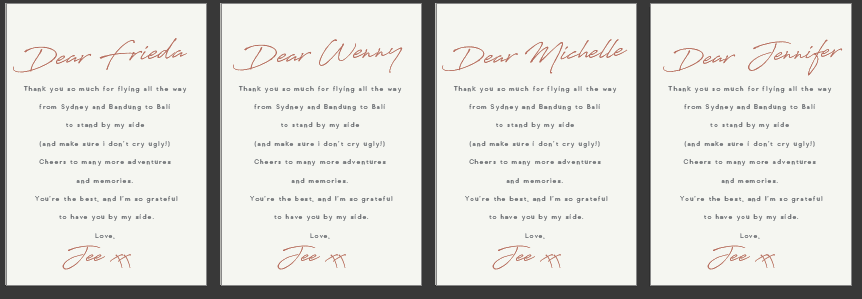 Dear Frieda
Thank you so much for flying all the way
from Sydney and Bandung to Bali
to stand by my side
(and make sure i don't cry ugly!)
Cheers to many more adventures
and memories.
You're the best, and I'm so grateful
to have you by my side.
Love,
Jee xx
Dear Wenny
Thank you so much for flying all the way
from Sydney and Bandung to Bali
to stand by my side
(and make sure i don't cry ugly!)
Cheers to many more adventures
and memories.
You're the best, and I'm so grateful
to have you by my side.
Love,
Jee xx
Dear Michelle
Thank you so much for flying all the way
from Sydney and Bandung to Bali
to stand by my side
(and make sure i don't cry ugly!)
Cheers to many more adventures
and memories.
You're the best, and I'm so grateful
to have you by my side.
Love,
Jee xx
Dear Jennifer
Thank you so much for flying all the way
from Sydney and Bandung to Bali
to stand by my side
(and make sure i don't cry ugly!)
Cheers to many more adventures
and memories.
You're the best, and I'm so grateful
to have you by my side.
Love,
Jee xx